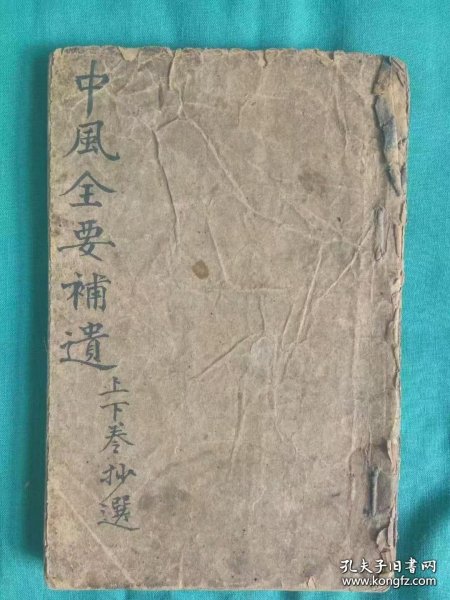 中風全要補遺
上下卷抄選
孔夫子旧书网
www.kongfz.com